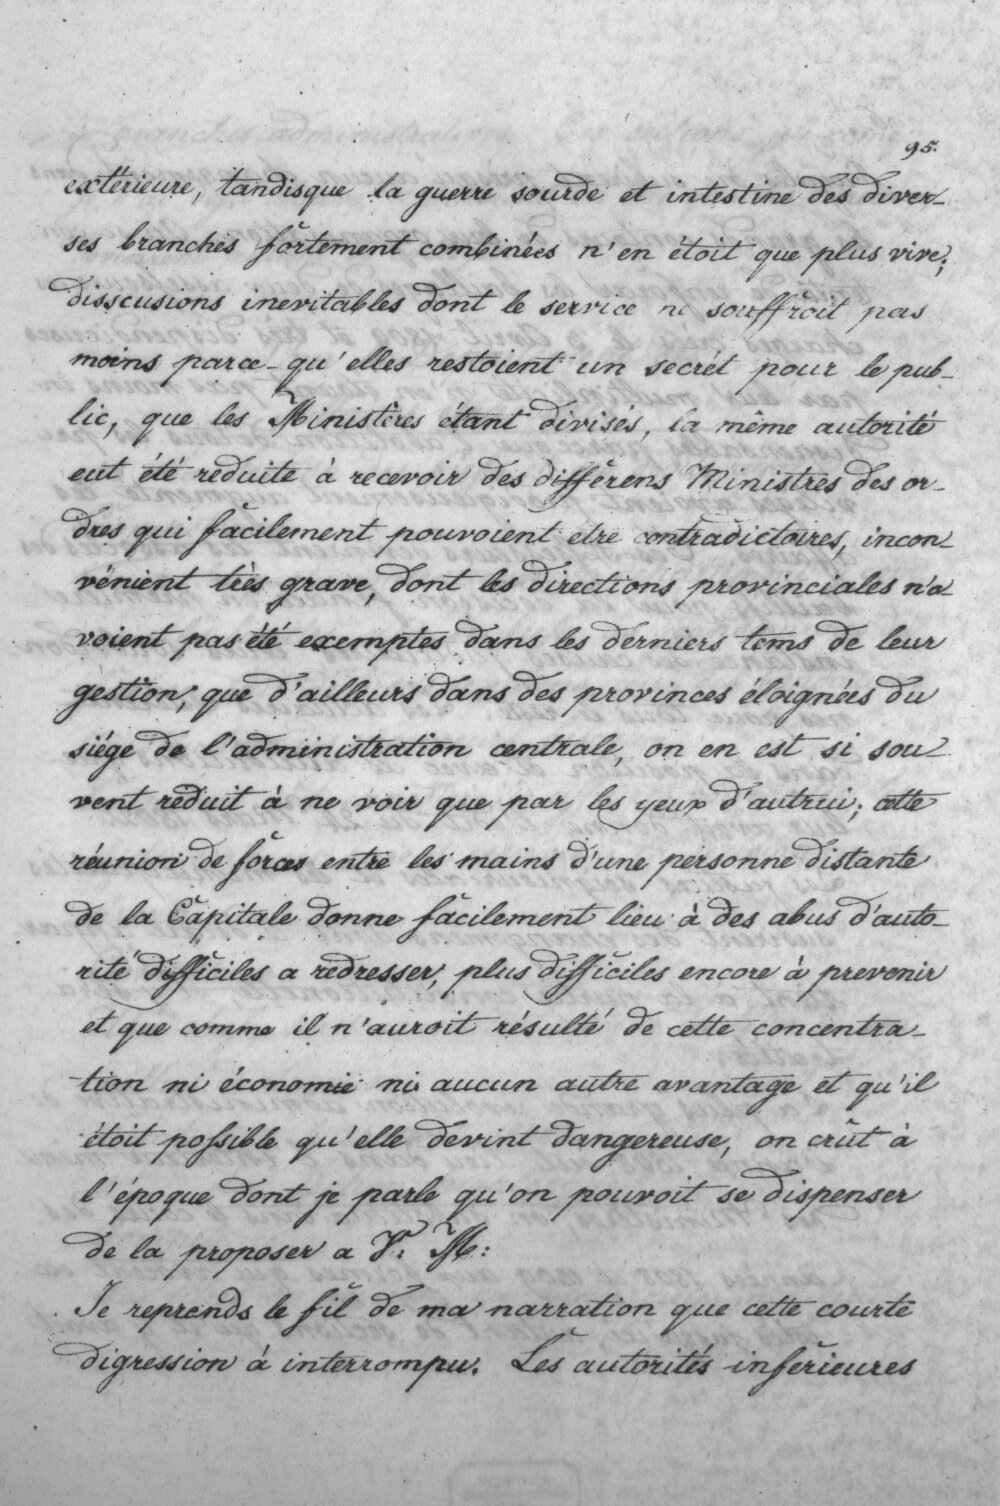 95.
extérieure, tandisque la guerre sourde et intestine des diver-
ses branches fortement combinées n'en étoit que plus vive;
disscusions inevitables dont le service ne souffroit pas
moins parce-qu'elles restoient un secrét pour le pub-
lic, que les Ministères étant divisés, la même autorité
eut été reduite à recevoir des différens Ministres des or-
dres qui facilement pouvoient etre contradictoires, incon-
vénient très grave, dont les directions provinciales n'a
voient pas été exemptes dans les derniers tems de leur
géstion; que d'ailleurs dans des provinces éloignées du
siége de l'administration centrale, on en est si sou-
vent réduit à ne voir que par les yeux d'autrui; cette
réunion de forces entre les mains d'une personne distante
de la Capitale donne facilement lieu à des abus d'auto-
rité difficiles a redresser, plus difficiles encore à prevenir
et que comme il n'auroit résulté de cette concentra-
tion ni économie ni aucun autre avantage et qu'il
étoit possible qu'elle devint dangereuse, on crût à
l'époque dont je parle qu'on pouvoit se dispenser
de la proposer a V. M:
Je reprends le fil de ma narration que cette courte
digression à interrompu. Les autorités inférieures